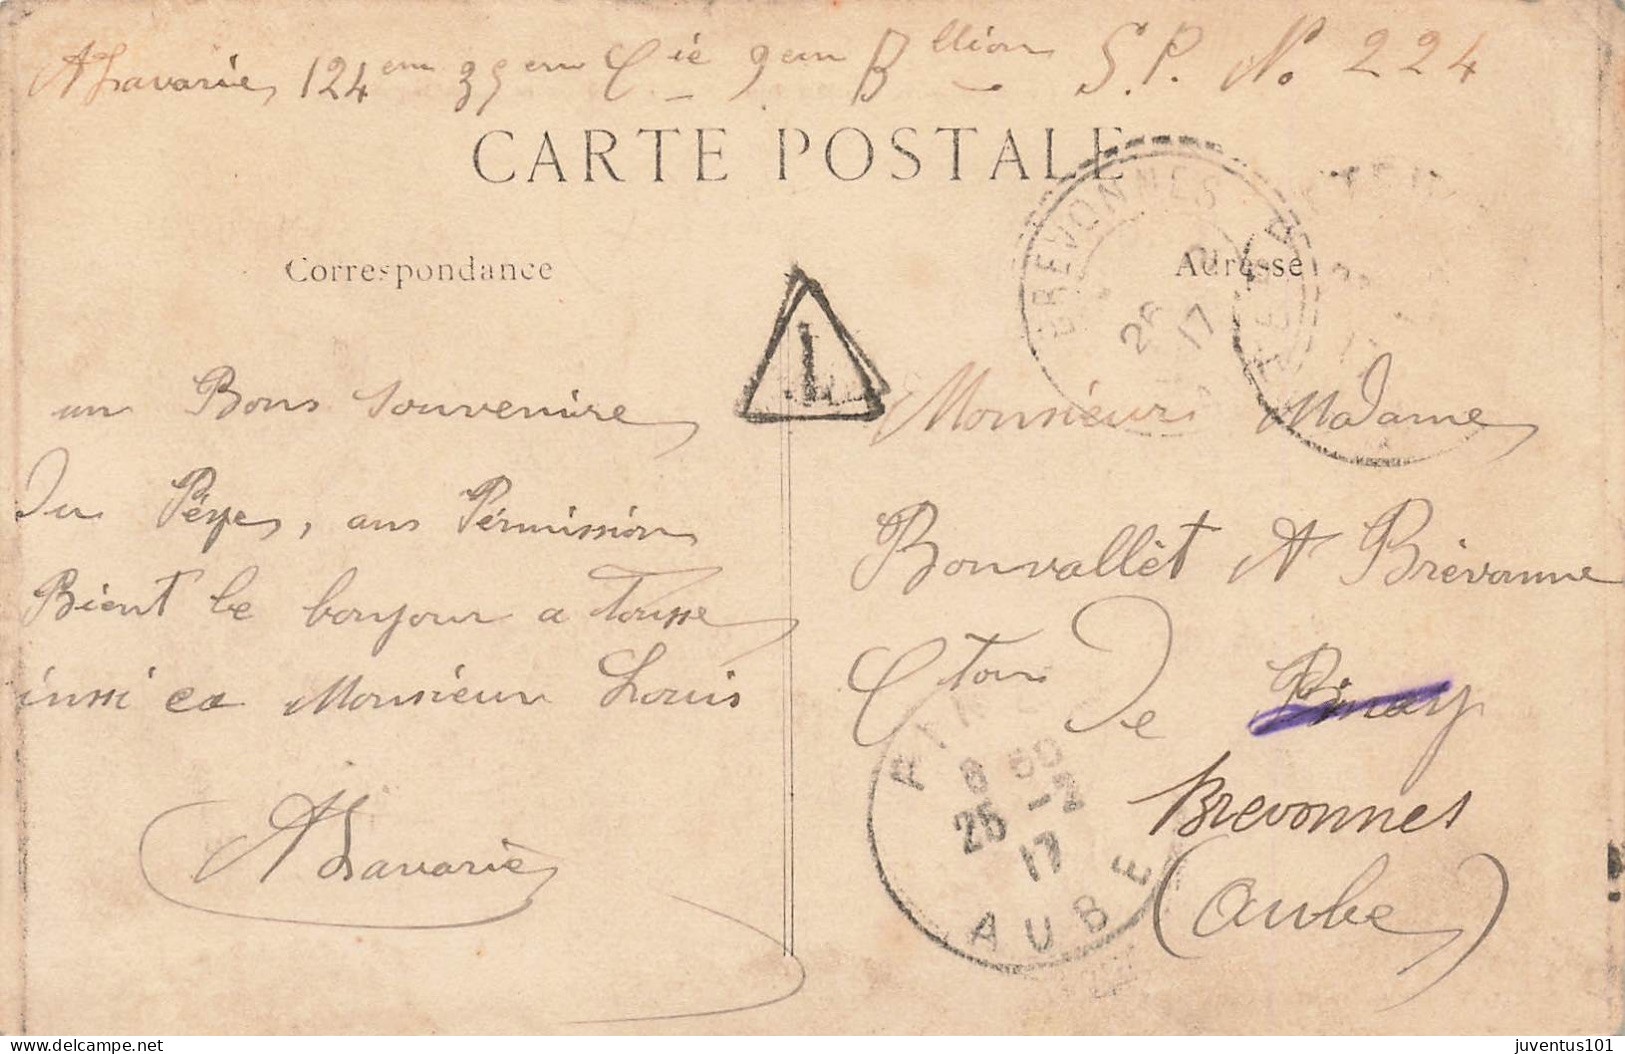 A Lavarie 124em 35em Cie 9em Bllion S.P. No 224
CARTE POSTALE
Correspondance
Adresse
BREVONNES
26 2
17
T
un Bons Souvenire
Du Péyes, ans Permission
Bient le bonjour a Tousse
inssi ca Monsieur Louis
A Lavarie
Monsieur Madame
Bonvallèt A Brévonne
Cton De Pinay
Brevonnes
(Aube)
8 50
25 -2
17
AUBE
delcampe.net
juventus101